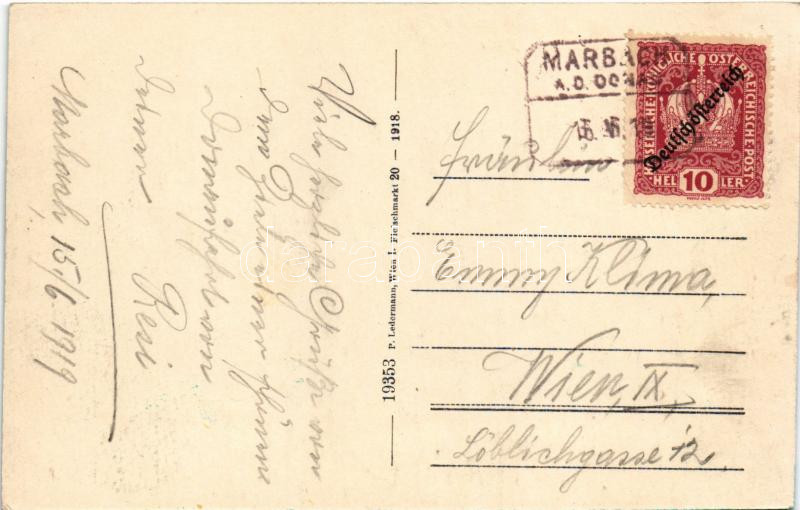 Marbach, 15./6. 1919
Viele herzliche Grüße von
einer
Donaufahrt von
Deiner
Resi
19353 P. Ledermann, Wien I. Fleischmarkt 20 — 1918.
MARBACH
A.D. DONAU
KAISERLICHE KÖNIGLICHE ÖSTERREICHISCHE POST
Deutschösterreich
HELLER
10
Fräulein
Emmy Klima,
Wien, IX,
Löblichgasse 12.
darabanth